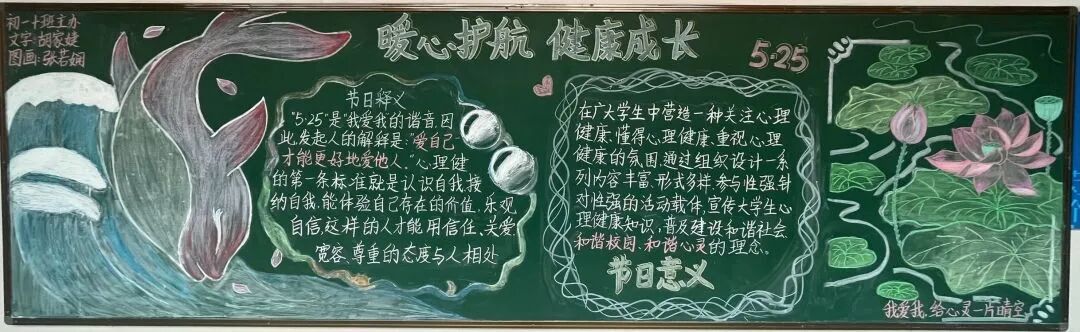 初一十班主办
文字:胡家婕
图画:张若娴
暖心护航 健康成长
5·25
节日释义
"5·25"是"我爱我"的谐音,因
此发起人的解释是:"爱自己
才能更好地爱他人。"心理健
的第一条标准就是认识自我接
纳自我,能体验自己存在的价值,乐观
自信,这样的人才能用信任、关爱
宽容、尊重的态度与人相处
在广大学生中营造一种关注心理
健康、懂得心理健康、重视心理
健康的氛围,通过组织设计一系
列内容丰富、形式多样,参与性强,针
对性强的活动载体,宣传大学生心
理健康知识,普及建设和谐社会
和谐校园、和谐心灵的理念。
节日意义
我爱我,给心灵一片晴空